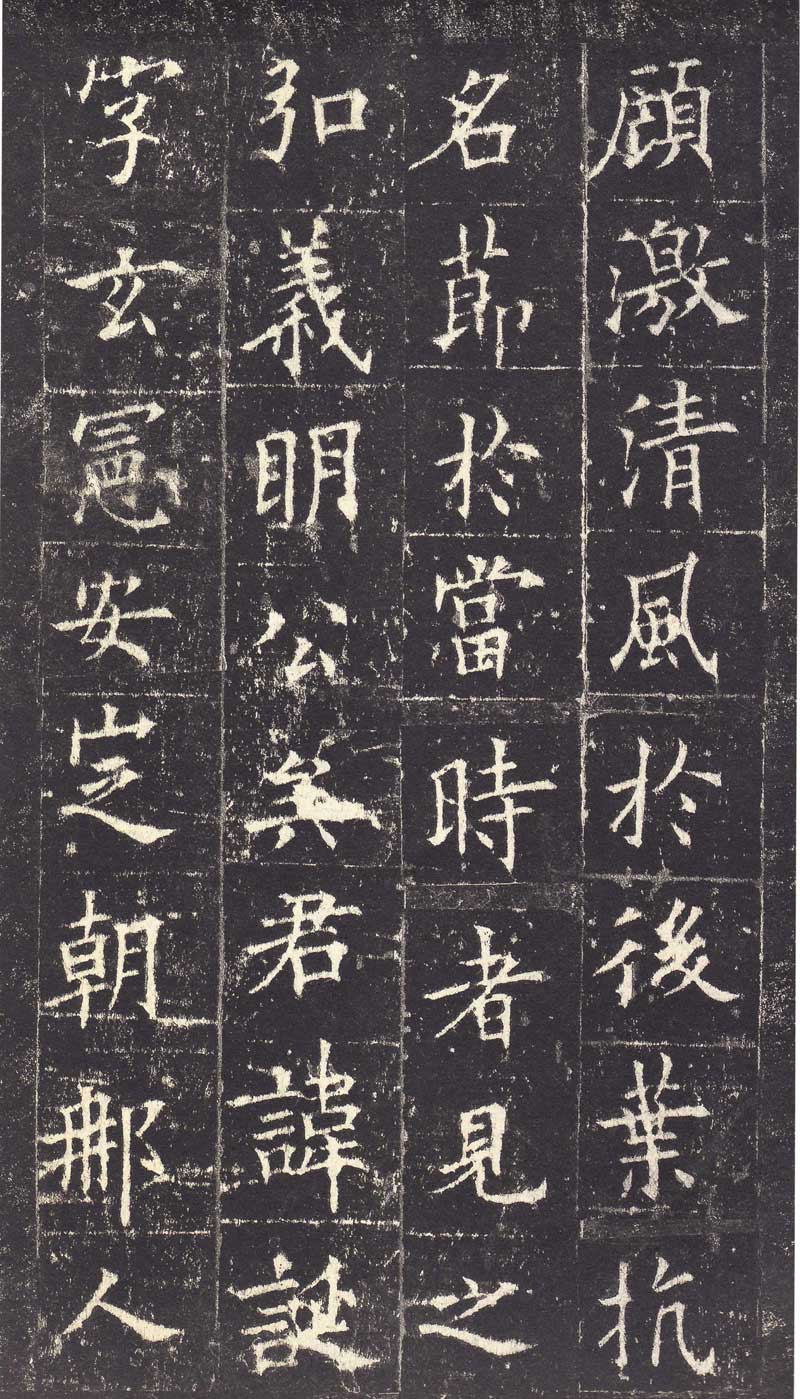 顧激清風於後葉抗
名莭於當時者見之
弘義明公矣君諱誕
字玄憲安㝎朝𨙻人